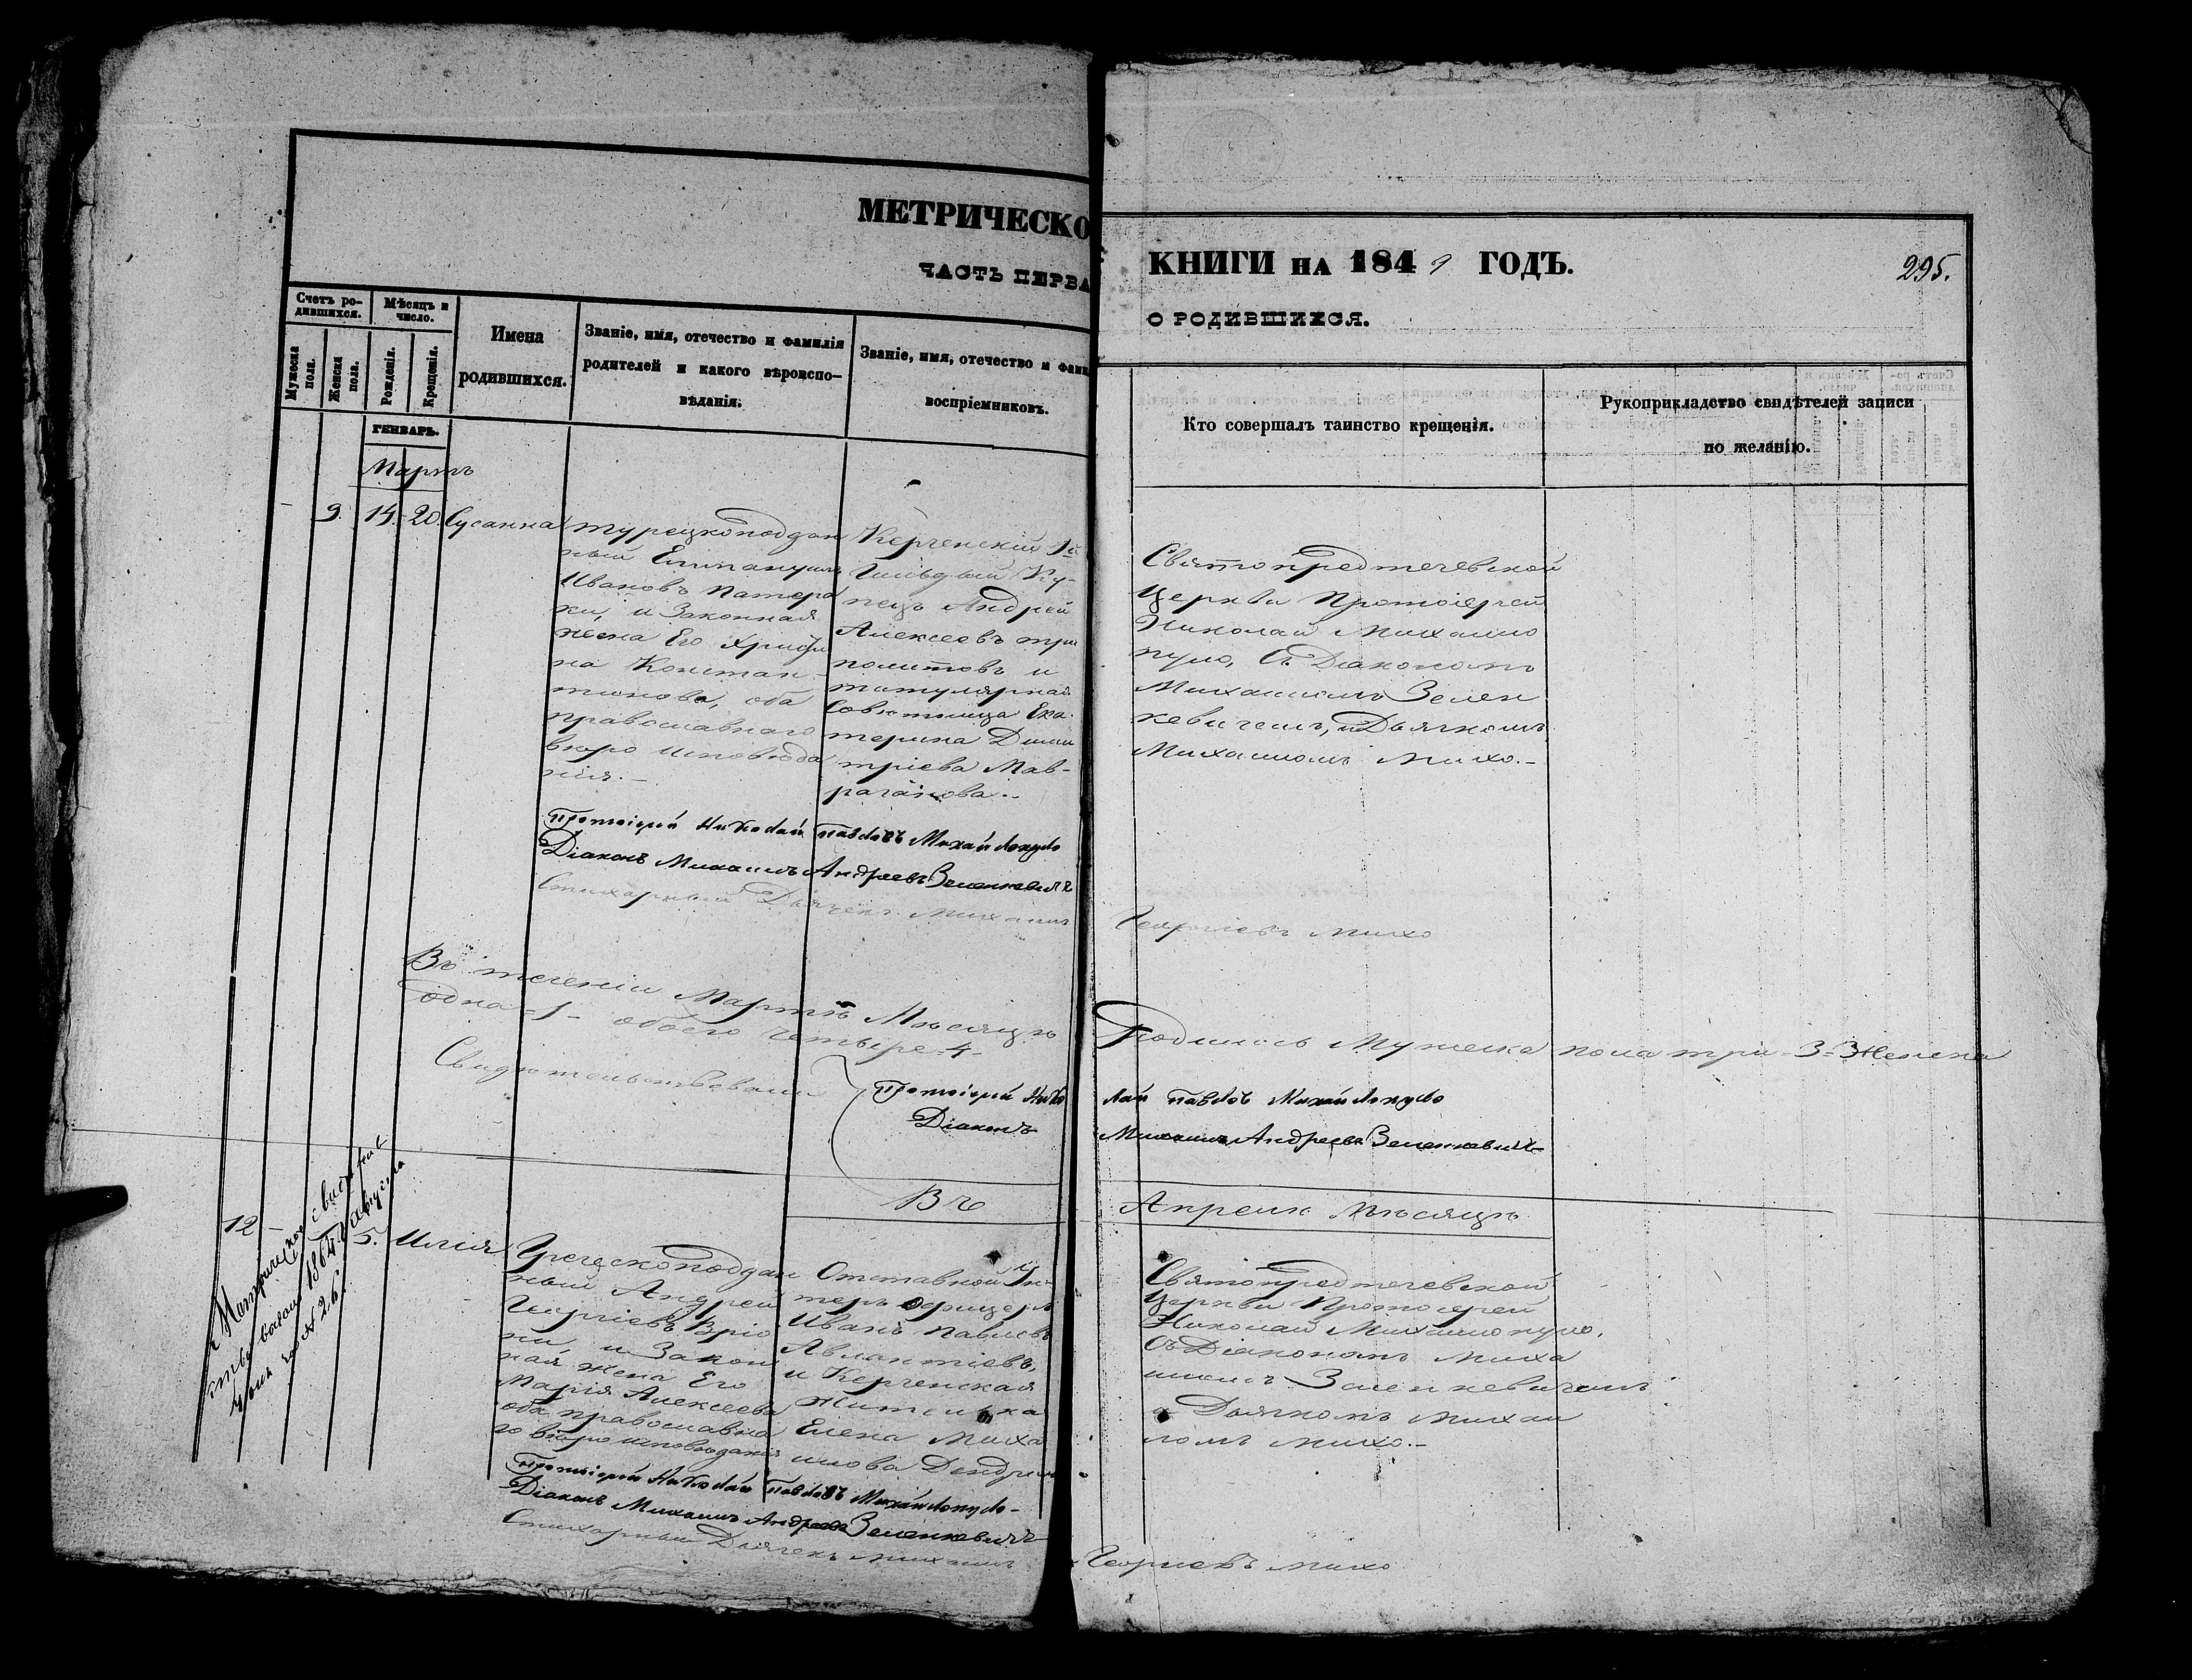 МЕТРИЧЕСКО
ЧАСТЬ ПЕРВА
КНИГИ НА 1849 ГОДЪ.
295.
О РОДИВШИХСЯ.
Счетъ ро-
дившихся.
Мѣсяцъ и
число.
Мужеска
пола.
Женска
пола.
Рожденія.
Крещенія.
Имена
родившихся.
Званіе, имя, отечество и фамилія
родителей и какого вѣроиспо-
вѣданія.
Званіе, имя, отечество и фами
воспріемниковъ.
Кто совершалъ таинство крещенія.
Рукоприкладство свидѣтелей записи
по желанію.
ГЕНВАРЬ.
Мартъ
9. 14. 20. Сусанна
турецкоподдан
ный Еммануилъ
Ивановъ Патера
ки, и Законная
жена Его Христи
на Констан-
тинова, оба
православнаго
вѣроисповѣда
нія.-
Керченскій
Гильдіи Ку-
пецъ Андрей
Алексеевъ Три
политовъ и
титулярная
Совѣтница Ека-
терина Дими
тріева Мав-
рагáнова.-
Святопредтечевской
Церкви Протоіерей
Николай Михаило
пуло, съ Діакономъ
Михаиломъ Зелен
кевичемъ, и Дьячкомъ
Михаиломъ Михо.-
Протоіерей Николай Павловъ Михайлопуло
Діаконъ Михаилъ Андреевъ Зеленкевичъ
Стихарный Дьячекъ Михаилъ Георгіевъ Михо
Въ теченіи Мартъ Мѣсяцъ Родилось Мужеска пола три-3-Женска
одна-1- обоего четыре-4-
Свидѣтельствовали
Протоіерей Николай Павловъ Михайлопуло
Діаконъ Михаилъ Андреевъ Зеленкевичъ
Въ Апрелѣ Мѣсяцѣ
12 - 5. Илія
Метрическое свидѣтель
1864 Августа
№ 26
Греческоподдан
ный Андрей
Георгіевъ Вріо
ни и Закон
ная жена Его
Марія Алексеева
оба православна
го вѣроисповѣданія
Отставной Ун-
теръ Офицеръ
Иванъ Павловъ
Авлантіевъ,
и Керченская
Жителька
Елена Миха
илова Дендри
Святопредтечевской
Церкви Протоіерей
Николай Михаилопуло,
Съ Діакономъ Миха
иломъ Зеленкевичемъ
и Дьячкомъ Михаи
ломъ Михо.-
Протоіерей Николай Павловъ Михайлопуло-
Діаконъ Михаилъ Андреевъ Зеленкевичъ
Стихарный Дьячекъ Михаилъ Георгіевъ Михо